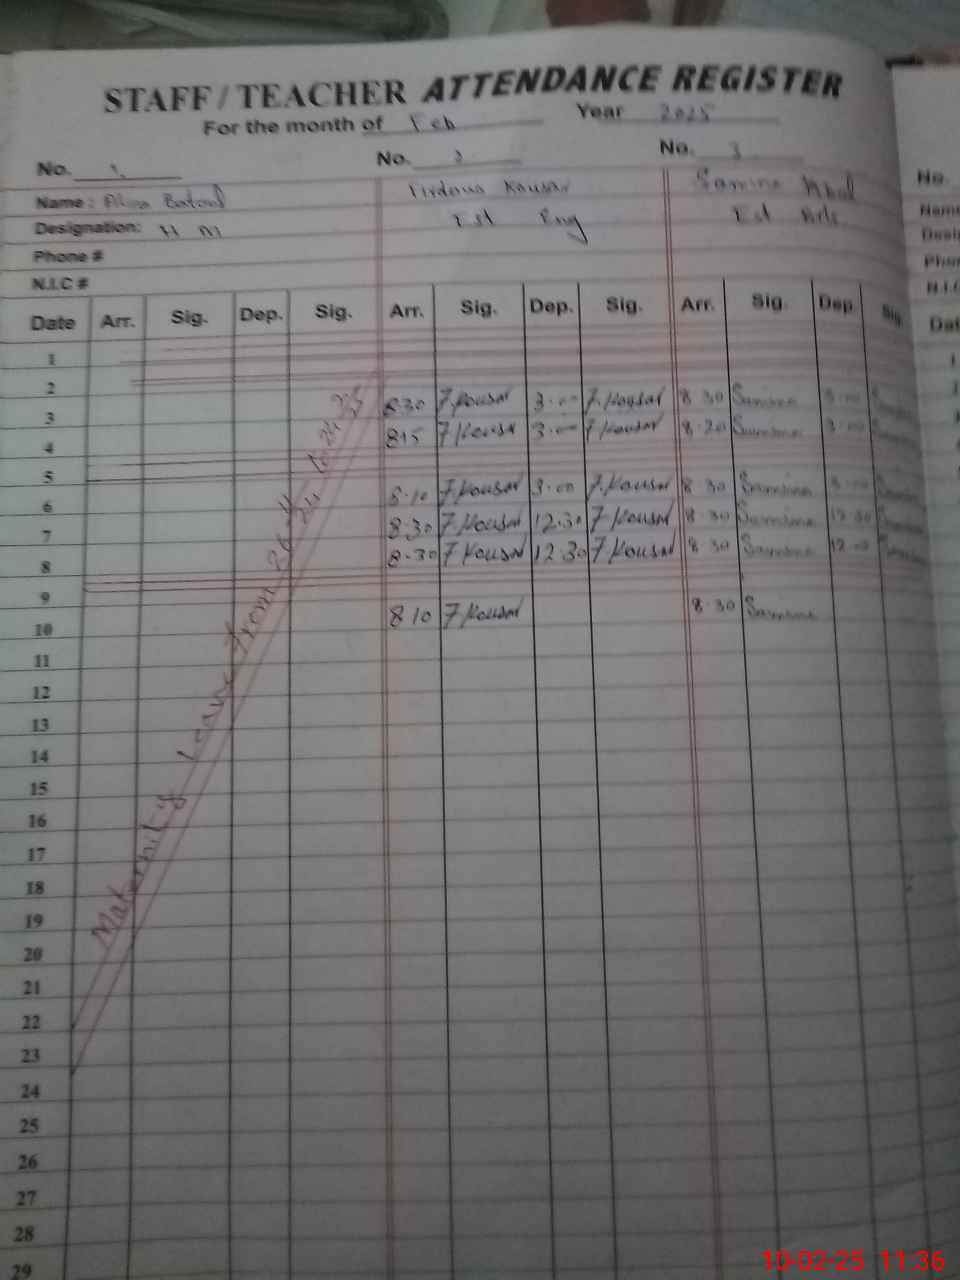 STAFF / TEACHER ATTENDANCE REGISTER
For the month of Feb Year 2025
No. 1. No. 2 No. 3 No.
Name: Batool Firdous Kousar Samina Name
Designation: H M Est Eng Est Desi
Phone # Pho
N.I.C # N.I.C
Date Arr. Sig. Dep. Sig. Arr. Sig. Dep. Sig. Arr. Sig. Dep. Sig. Dat
1
2
3 8.30 F Kousar 3.00 F Kousar 8 30 Samina 3.00
4 815 F Kousar 3.00 F Kousar 8.20 Samina 3.00
5
6 8.10 F Kousar 3.00 F Kousar 8 30 Samina 3.00
7 8.30 F Kousar 12.30 F Kousar 8.30 Samina 12.30
8 8.30 F Kousar 12.30 F Kousar 8 30 Samina
9
10 8 10 F Kousar 8.30 Samina
11
12
13
14
15
16
17
18
19
20
21
22
23
24
25
26
27
28
29
Maternity Leave from 26 to
10-02-25 11:36